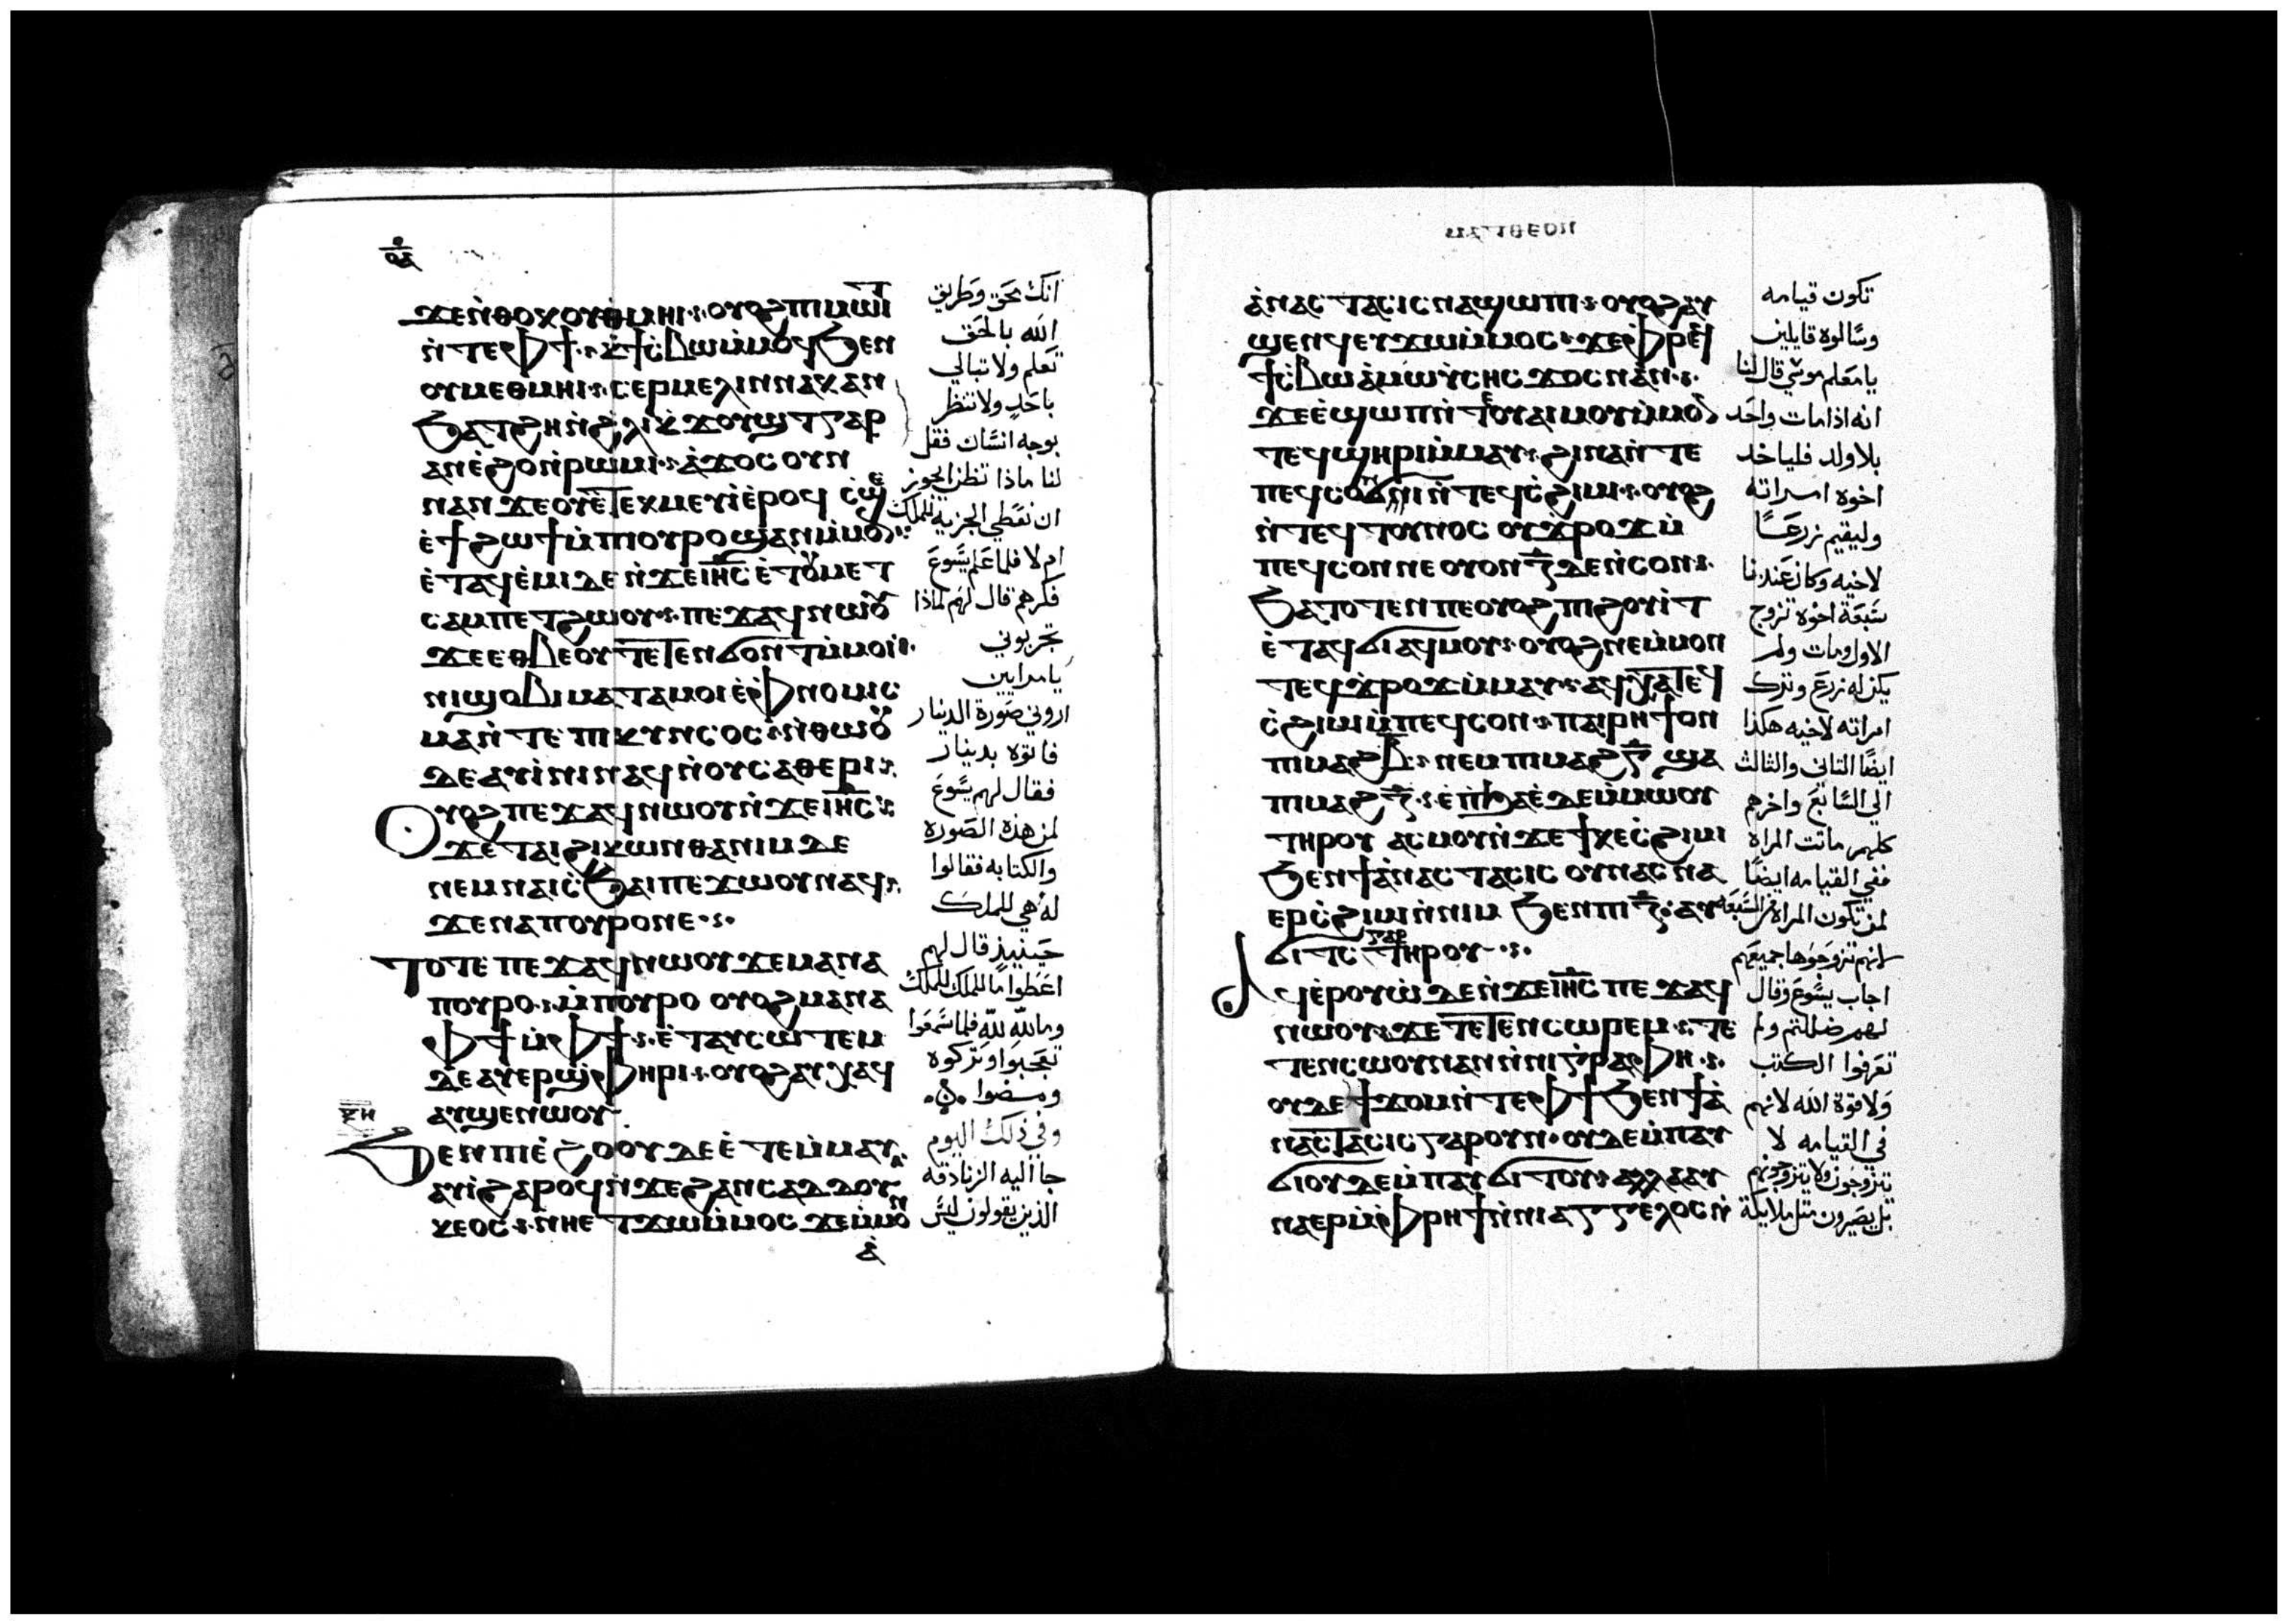 ϫⲉⲛ̀ⲑⲟⲕ ⲟⲩⲑⲙⲏⲓ ⲟⲩⲟϩ ⲡⲓⲙⲱⲓⲧ
ⲛ̀ⲧⲉⲫϯ ⲕϯⲥ̀ⲃⲱ ⲙ̀ⲙⲟϥ ϧⲉⲛ
ⲟⲩⲙⲉⲑⲙⲏⲓ ⲥⲉⲣⲙⲉⲗⲓⲛ ⲛⲁⲕ ⲁⲛ
ϧⲁⲧϩⲏ ⲛ̀ϩⲗⲓ ⲭ̀ϫⲟⲩϣⲧ ⲅⲁⲣ
ⲁⲛ ⲉ̀ϩⲟ ⲛ̀ⲣⲱⲙⲓ ⲁ̀ϫⲟⲥ ⲟⲩⲛ
ⲛⲁⲛ ϫⲉ ⲟⲩ ⲉ̀ⲧⲉⲕⲙⲉⲩⲓ ⲉ̀ⲣⲟϥ ⲥ̀ϣⲉ
ⲉ̀ϯϩⲱϯ ⲙ̀ⲡⲟⲩⲣⲟ ϣⲁⲛ ⲙ̀ⲙⲟⲛ
ⲉ̀ⲧⲁϥⲉ̀ⲙⲓ ⲇⲉ ⲛ̀ϫⲉ ⲓⲏⲥ ⲉ̀ⲧⲟⲩⲙⲉⲧ
ⲥⲁⲙⲡⲉⲧϩⲱⲟⲩ ⲡⲉϫⲁϥ ⲛⲱⲟⲩ
ϫⲉ ⲉⲑⲃⲉⲟⲩ ⲧⲉⲧⲉⲛϭⲟⲛⲧ ⲙ̀ⲙⲟⲓ
ⲛⲓϣⲟⲃⲓ ⲙⲁⲧⲁⲙⲟⲓ ⲉ̀ⲫⲛⲟⲙⲓⲥ
ⲙⲁ ⲛ̀ⲧⲉ ⲡⲓⲕⲩⲛⲥⲟⲥ ⲛ̀ⲑⲱⲟⲩ
ⲇⲉ ⲁⲩⲓ̀ⲛⲓ ⲛⲁϥ ⲛ̀ⲟⲩⲥⲁⲑⲉⲣⲓ
ⲟⲩⲟϩ ⲡⲉϫⲁϥ ⲛⲱⲟⲩ ⲛ̀ϫⲉ ⲓⲏⲥ
ϫⲉ ⲧⲁⲓϩⲓⲕⲱⲛ ⲑⲁ ⲛⲓⲙ ⲇⲉ
ⲛⲉⲙ ⲛⲁⲓⲥ̀ϧⲁⲓ ⲡⲉϫⲱⲟⲩ ⲛⲁϥ
ϫⲉ ⲛⲁ ⲡⲟⲩⲣⲟ ⲛⲉ
ⲧⲟⲧⲉ ⲡⲉϫⲁϥ ⲛⲱⲟⲩ ϫⲉ ⲙⲁ ⲛⲁ
ⲡⲟⲩⲣⲟ ⲙ̀ⲡⲟⲩⲣⲟ ⲟⲩⲟϩ ⲙⲁ ⲛⲁ
ⲫϯ ⲙ̀ⲫϯ ⲉ̀ⲧⲁⲩⲥⲱⲧⲉⲙ
ⲇⲉ ⲁⲩⲉⲣϣⲫⲏⲣⲓ ⲟⲩⲟϩ ⲁⲩⲭⲁϥ
ⲁⲩϣⲉⲛⲱⲟⲩ
ϧⲉⲛ ⲡⲓⲉ̀ϩⲟⲟⲩ ⲇⲉ ⲉ̀ⲧⲉⲙⲙⲁⲩ
ⲁⲩⲓ̀ ϩⲁⲣⲟϥ ⲛ̀ϫⲉ ϩⲁⲛⲥⲁⲇⲇⲟⲩ
ⲕⲉⲟⲥ ⲛⲏⲉⲧϫⲱ ⲙ̀ⲙⲟⲥ ϫⲉ ⲙ̀ⲙⲟⲛ
ⲁ̀
انك محق وطريق
الله بالحق
تعلم ولا تبالي
باحد ولا تنظر
بوجه انسان فقل
لنا ماذا تظن ايجوز
ان نعطي الجزية للملك
ام لا فلما علم يسوع
فكرهم قال لهم لماذا
تجربوني
يا مرايين
اروني صورة الدينار
فاتوه بدينار
فقال لهم يسوع
لمن هذه الصوره
والكتابه فقالوا
له هي للملك
حينيذ قال لهم
اعطوا ما للملك للملك
وما لله لله فلما سمعوا
تعجبوا وتركوه
ومضوا
وفي ذلك اليوم
جا اليه الزنادقه
الذين يقولون ليس
ⲙⲁⲧⲑⲉⲟⲛ
ⲁ̀ⲛⲁⲥⲧⲁⲥⲓⲥ ⲛⲁϣⲱⲡⲓ ⲟⲩⲟϩ ⲁⲩ
ϣⲉⲛϥ ⲉⲩϫⲱ ⲙ̀ⲙⲟⲥ ϫⲉ ⲫⲣⲉϥ
ϯⲥ̀ⲃⲱ ⲁ̀ ⲙⲱⲩ̀ⲥⲏⲥ ϫⲟⲥ ⲛⲁⲛ
ϫⲉ ⲉ̀ϣⲱⲡ ⲛ̀ⲧⲉ ⲟⲩⲁⲓ ⲙⲟⲩ ⲙ̀ⲙⲟⲛ
ⲧⲉϥϣⲏⲣⲓ ⲙ̀ⲙⲁⲩ ϩⲓⲛⲁ ⲛ̀ⲧⲉ
ⲡⲉϥⲥⲟⲛ ϭⲓ ⲛ̀ⲧⲉϥⲥ̀ϩⲓⲙⲓ ⲟⲩⲟϩ
ⲛ̀ⲧⲉϥⲧⲟⲩⲛⲟⲥ ⲟⲩϫ̀ⲣⲟϫ ⲙ̀
ⲡⲉϥⲥⲟⲛ ⲛⲉ ⲟⲩⲟⲛ ⲍ̅ ⲇⲉ ⲛ̀ⲥⲟⲛ
ϧⲁⲧⲟⲧⲉⲛ ⲡⲉ ⲟⲩⲟϩ ⲡⲓϩⲟⲩⲓ̀ⲧ
ⲉ̀ⲧⲁϥϭⲓ ⲁϥⲙⲟⲩ ⲟⲩⲟϩ ⲛⲉⲙ̀ⲙⲟⲛ
ⲧⲉϥϫ̀ⲣⲟϫ ⲙ̀ⲙⲁⲩ ⲁϥⲭⲁ ⲧⲉϥ
ⲥ̀ϩⲓⲙⲓ ⲙ̀ⲡⲉϥⲥⲟⲛ ⲡⲁⲓⲣⲏϯ ⲟⲛ
ⲡⲓⲙⲁϩⲃ̅ ⲛⲉⲙ ⲡⲓⲙⲁϩⲅ̅ ϣⲁ
ⲡⲓⲙⲁϩⲍ̅ ⲉ̀ⲡϧⲁⲉ̀ ⲇⲉ ⲙ̀ⲙⲱⲟⲩ
ⲧⲏⲣⲟⲩ ⲁⲥⲙⲟⲩ ⲛ̀ϫⲉ ϯⲕⲉⲥ̀ϩⲓⲙⲓ
ϧⲉⲛ ϯⲁ̀ⲛⲁⲥⲧⲁⲥⲓⲥ ⲟⲩⲛ ⲁⲥⲛⲁ
ⲉⲣⲥ̀ϩⲓⲙⲓ ⲛ̀ⲛⲓⲙ ϧⲉⲛ ⲡⲓⲍ̅ ⲁⲩ
ϭⲓⲧⲥ ⲅⲁⲣ ⲧⲏⲣⲟⲩ
ⲁϥⲉⲣⲟⲩⲱ̀ ⲇⲉ ⲛ̀ϫⲉ ⲓⲏⲥ ⲡⲉϫⲁϥ
ⲛⲱⲟⲩ ϫⲉ ⲧⲉⲧⲉⲛⲥⲱⲣⲉⲙ ⲧⲉ
ⲧⲉⲛⲥⲱⲟⲩⲛ ⲁⲛ ⲛ̀ⲛⲓⲅⲣⲁⲫⲏ
ⲟⲩⲇⲉ ϯϫⲟⲙ ⲛ̀ⲧⲉ ⲫϯ ϧⲉⲛ ϯⲁ̀
ⲛⲁⲥⲧⲁⲥⲓⲥ ⲅⲁⲣ ⲟⲩⲛ ⲟⲩⲇⲉ ⲙ̀ⲡⲁⲩ
ϭⲓ ⲟⲩⲇⲉ ⲙ̀ⲡⲁⲩϭⲓⲧⲟⲩ ⲁⲗⲗⲁ ⲁⲩ
ⲛⲁⲉⲣ ⲙ̀ⲫⲣⲏϯ ⲛ̀ⲛⲓⲁⲅⲅⲉⲗⲟⲥ ⲛ̀
تكون قيامه
وسالوه قايلين
يا معلم موسي قال لنا
انه اذا مات واحد
بلا ولد فلياخد
اخوه امراته
وليقيم زرعا
لاخيه وكان عندنا
سبعة اخوه تزوج
الاول ومات ولم
يكن له زرع وترك
امراته لاخيه هكذا
ايضا التاني والثالث
الي السابع واخرهم
كلهم ماتت المراة
ففي القيامه ايضا
لمن تكون المراة من السبعه
لانهم تزوجوها جميعهم
اجاب يسوع وقال
لهم ضللتم ولم
تعرفوا الكتب
ولا قوة الله لانهم
في القيامه لا
يتزوجون ولا يتزوجونهم
بل يصيرون مثل ملايكة